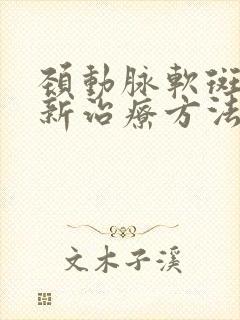 頸動脉軟斑
新治療方法
文木子溪